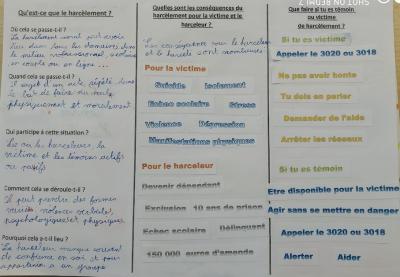 Qu'est-ce que le harcèlement ?
Où cela se passe-t-il ?
Le harcèlement peut avoir
lieu dans tous les domaines, dans
le milieu professionnel, scolaire,
en couple ou en ligne ...
Quand cela se passe-t-il ?
Il s'agit d'un acte répété dans
le but de faire du mal
physiquement et moralement
Qui participe à cette situation ?
Le ou les harceleurs, la
victime et les témoins actifs
ou passifs
Comment cela se déroule-t-il ?
Il peut prendre des formes
violence verbale,
psychologique et physiques
Pourquoi cela a-t-il lieu ?
Le harceleur manque
de confiance en soi et
un groupe
Quelles sont les conséquences du
harcèlement pour la victime et le
harceleur ?
Les conséquences pour le harceleur
et le harcelé sont nombreuses.
Pour la victime
Suicide Isolement
Echec scolaire Stress
Violence Dépression
Manifestations physiques
Pour le harceleur
Devenir dépendant
Exclusion 10 ans de prison
Echec scolaire Délinquant
150 000 euros d'amende
Que faire si tu es témoin
ou victime
de harcèlement ?
Si tu es victime
Appeler le 3020 ou 3018
Ne pas avoir honte
Tu dois en parler
Demander de l'aide
Arrêter les réseaux
Si tu es témoin
Etre disponible pour la victime
Agir sans se mettre en danger
Appeler le 3020 ou 3018
Alerter Aider